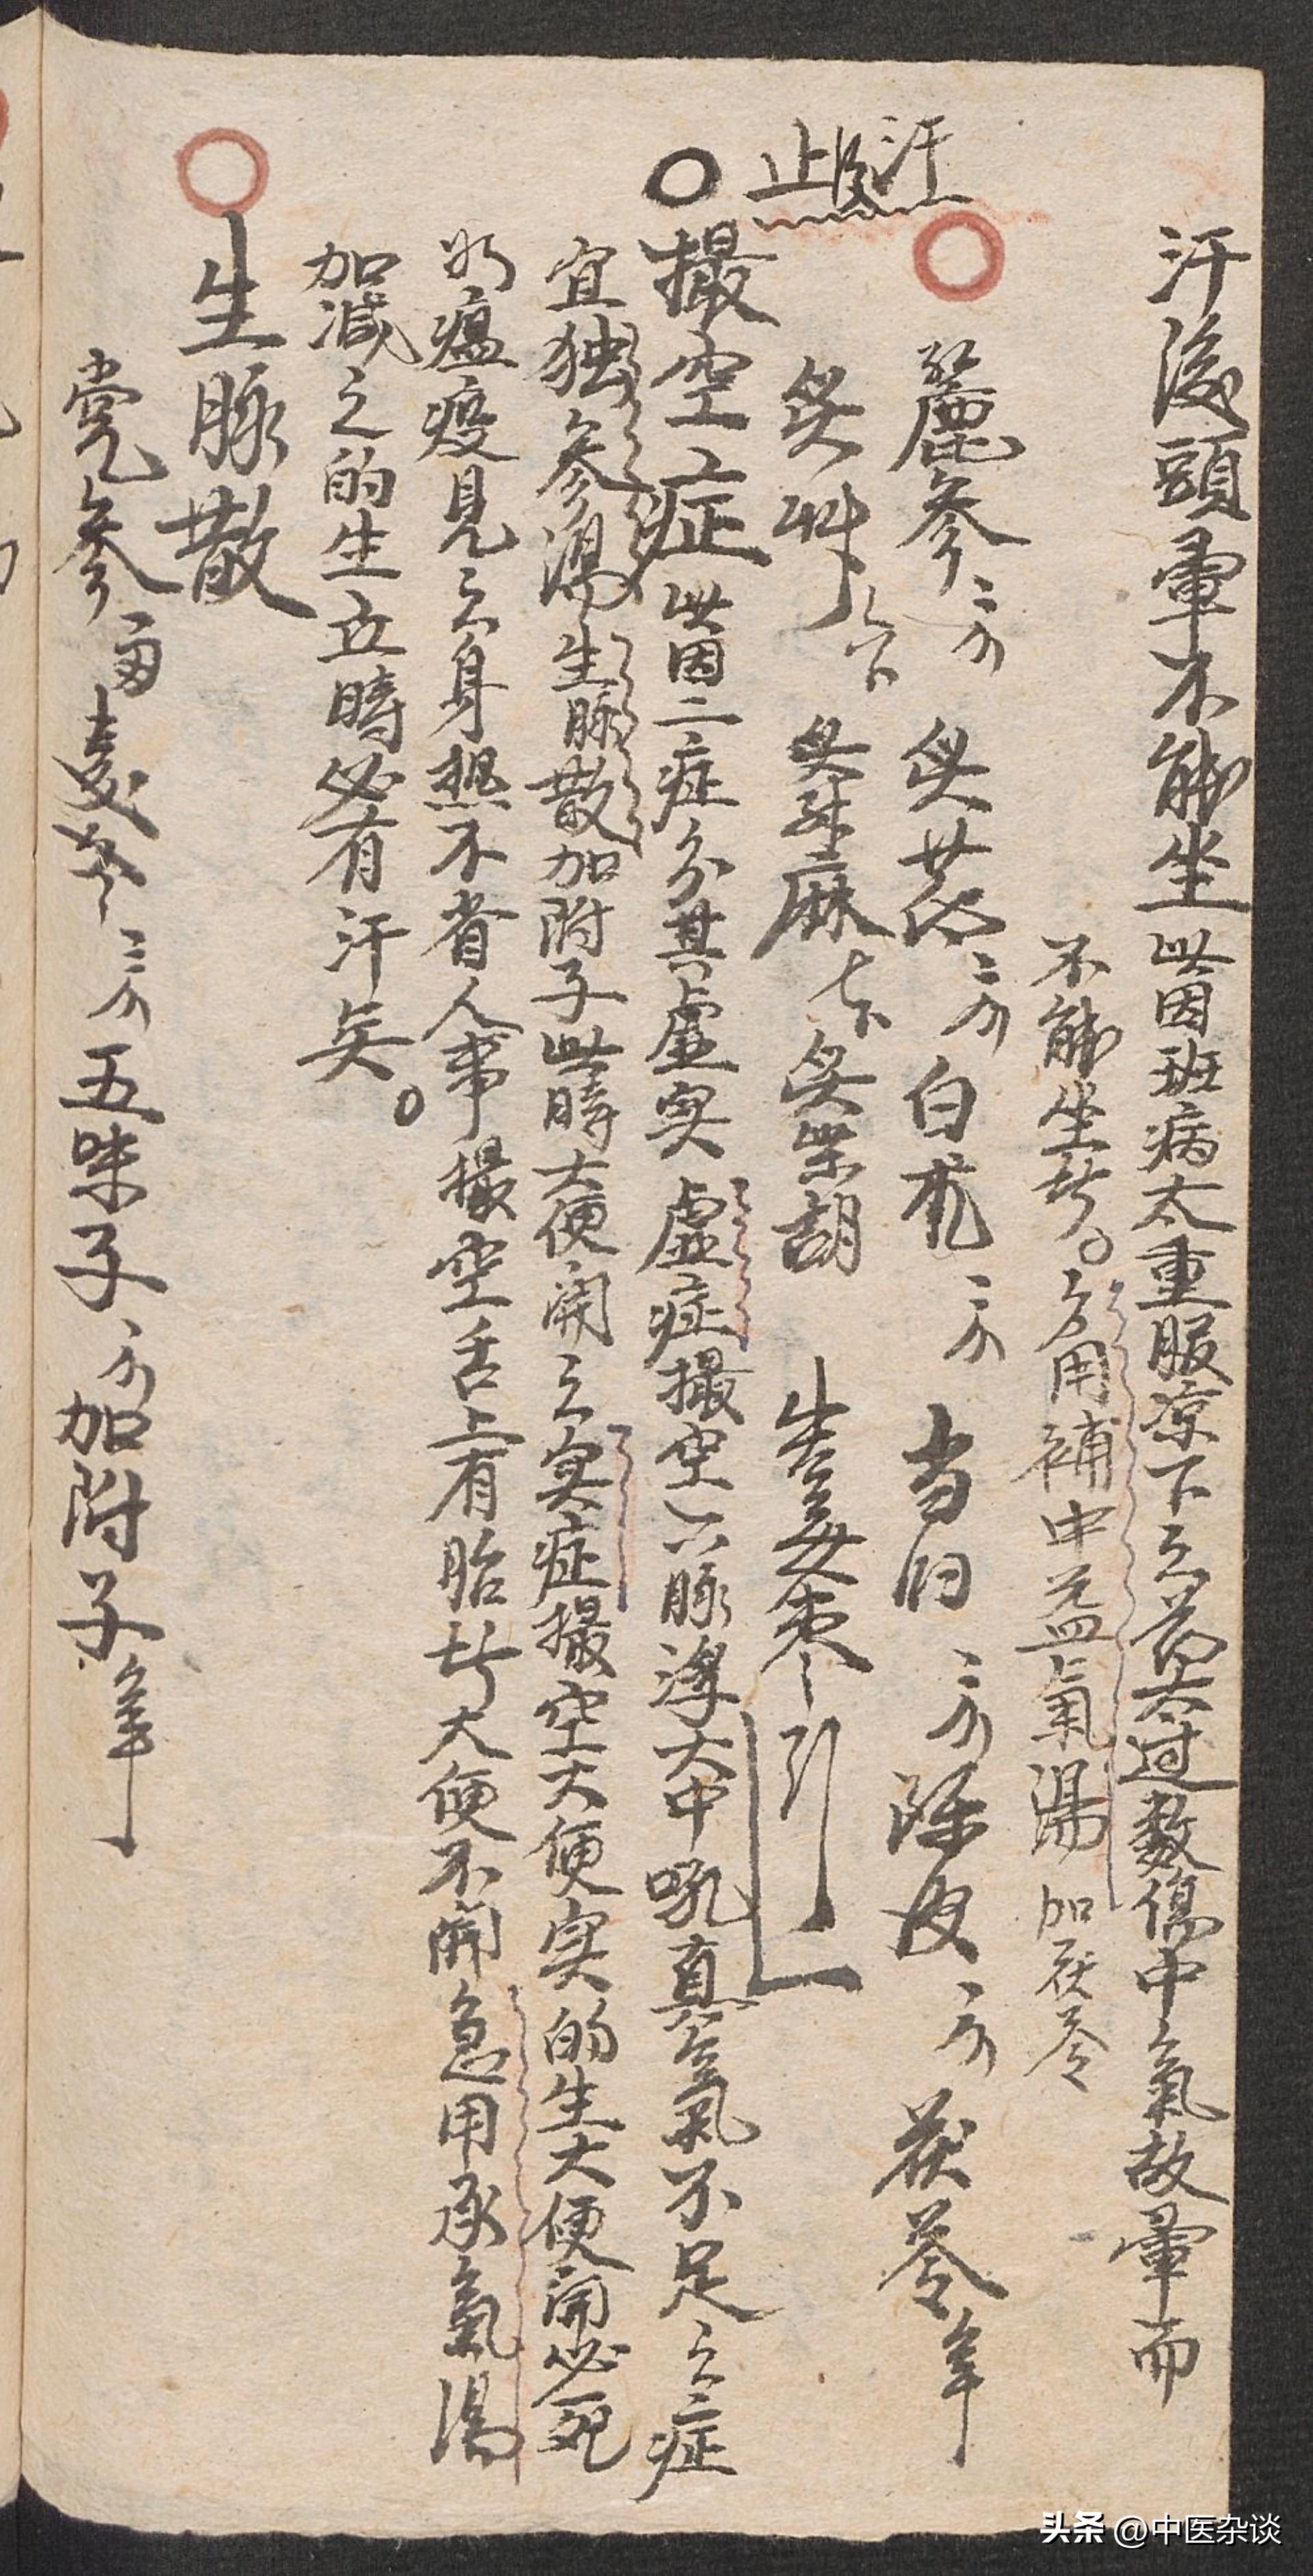 汗後頭暈不能坐 此因班病太重服凉下之药太过数傷中氣故暈而
不能坐者。方用補中益氣湯 加茯苓
汗後止
麗參 炙芪 白朮 三分 当归 三分 陈皮 二分 茯苓
炙艸 炙升麻 七卜 炙柴胡 生姜枣引
撮空症 此因二症分其虛实 虛症撮空六脉浮大中吼真氣不足之症
宜独參湯生脉散加附子此時大便開之实症撮空大便实的生大便開必死
如瘟疫見之身熱不省人事撮空舌上有胎者大便不開急用承氣湯
加減之的生立時必有汗矣。
生脉散
党參 麦冬 三分 五味子 加附子
头条 @中医杂谈